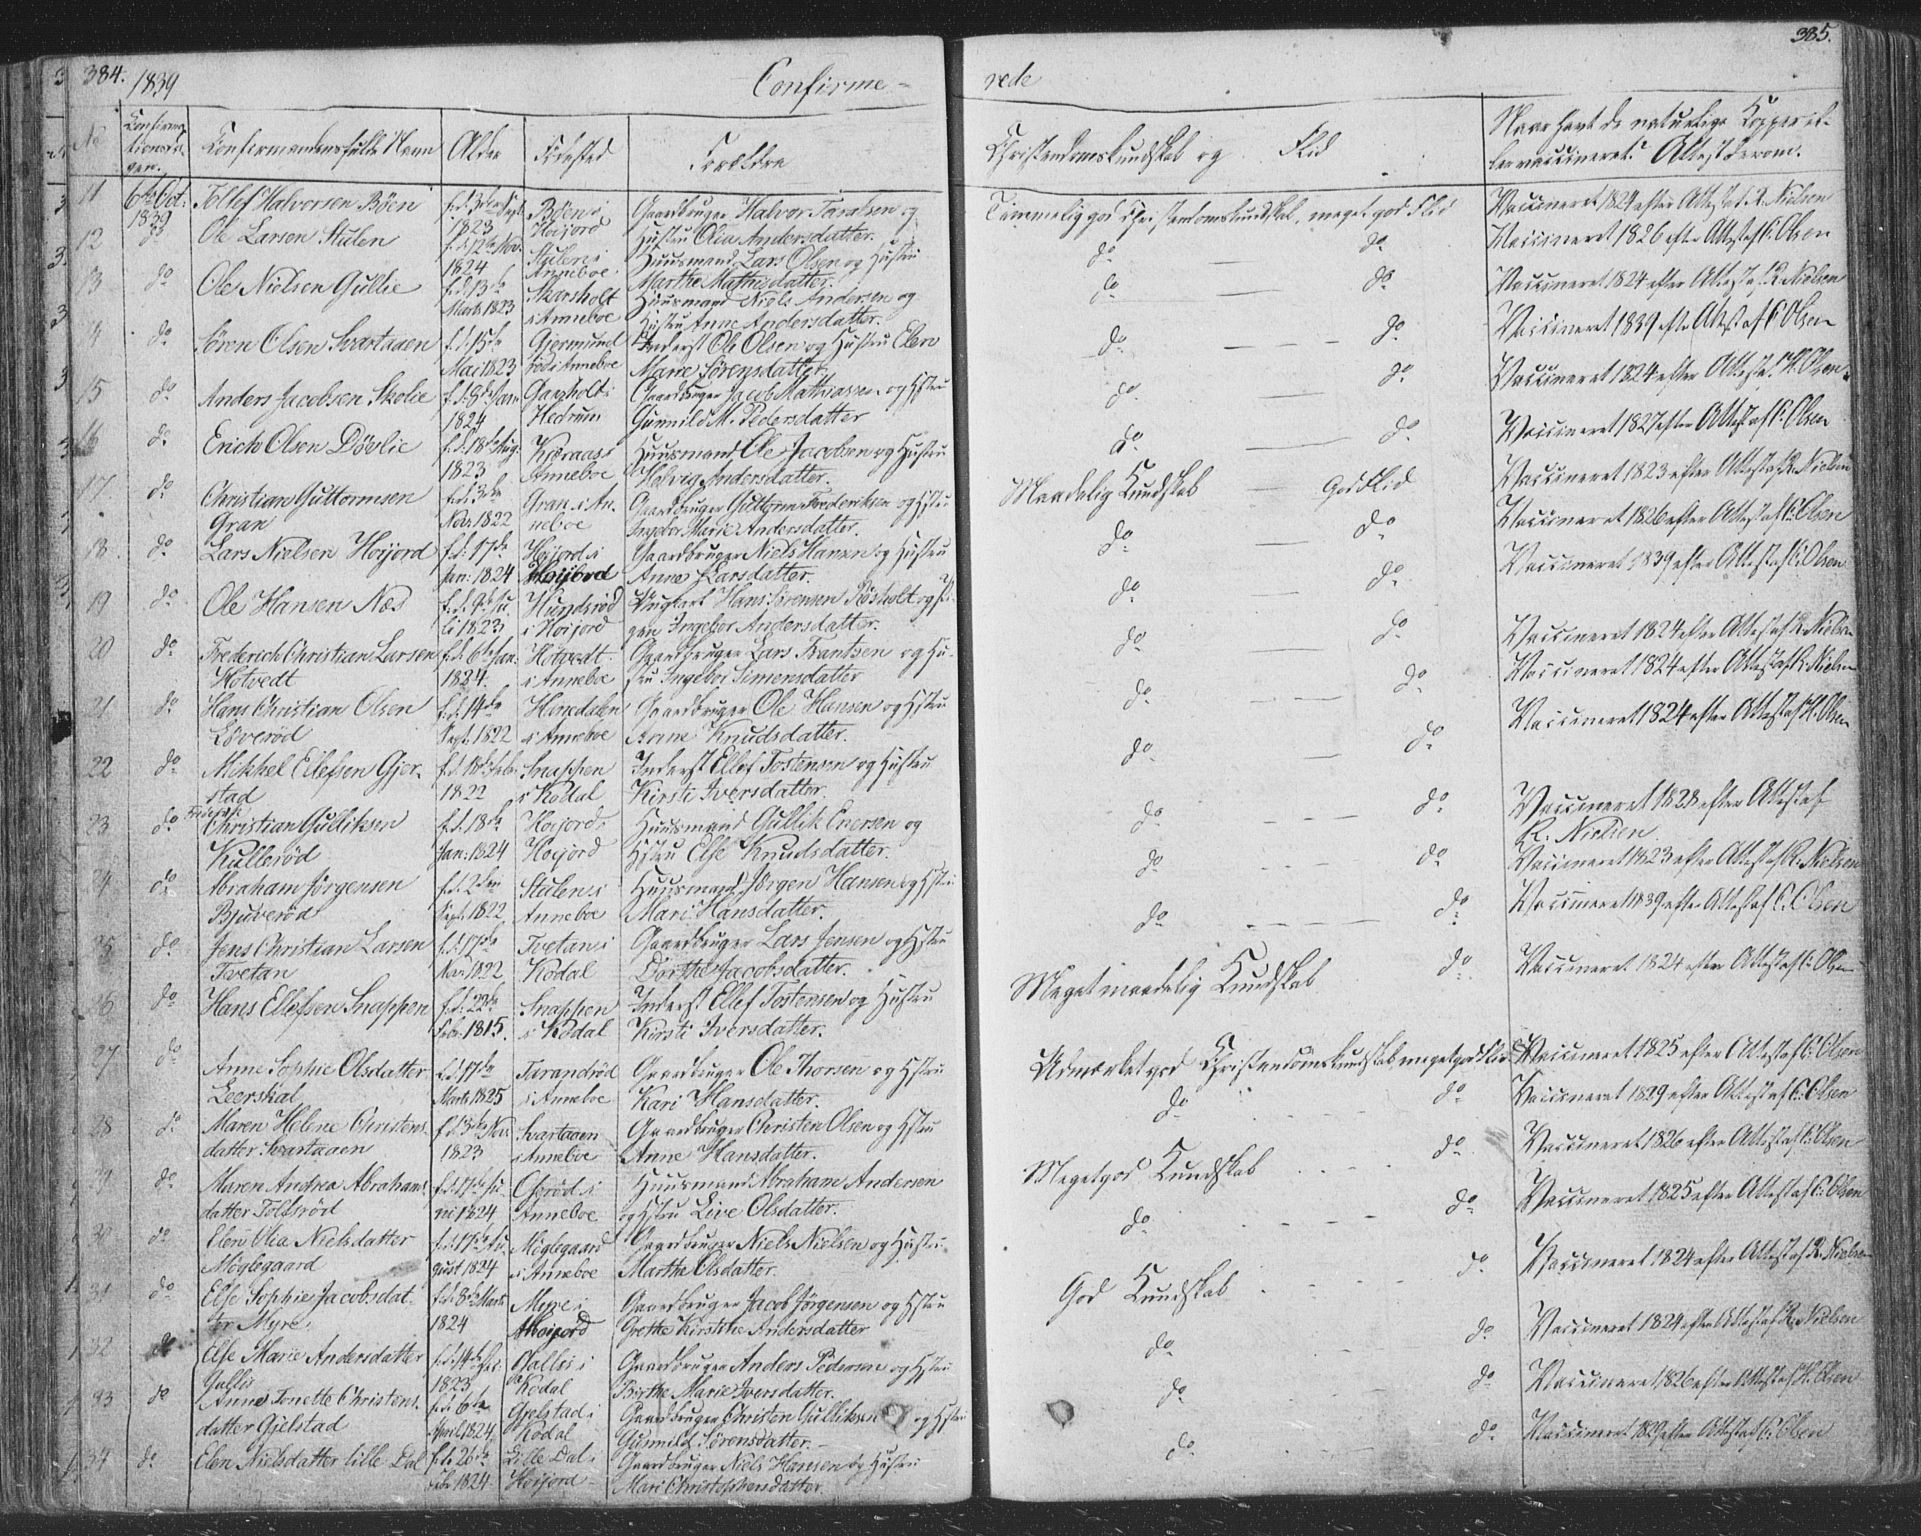 384. 1839 Confirme-
rede 385.
No Confirmationsdagen. Confirmandens fulde Navn Alder Fødested Forældre
Christendomskundskab og Flid Naar havt de naturlige Kopper eller vaccineret? Attest derom.
11 6te Oct. 1839 Tollef Halvorsen Böen f. d. 3die Sept. 1823 Böen i Hoijord Gaardbruger Halvor Taralsen og Hustru Olia Andersdatter. Temmelig god Christendomskundskab, meget god Flid Vaccineret 1824 efter Attest af R. Nielsen
12 do Ole Larsen Stulen f. d. 12te Nov. 1824 Stulen i Anneboe Huusmand Lars Olsen og Hustru Marthe Mathisdatter. do do Vaccineret 1826 efter Attest af C. Olsen
13 do Ole Nielsen Gullie f. d. 13de Marts 1823 Skarsholt i Anneboe Huusmand Niels Andersen og Hustru Anne Andersdatter. do do Vaccineret 1824 efter Attest af R. Nielsen
14 do Søren Olsen Svartaaen f. d. 15de Mai 1823 Gjermundrød i Anneboe Inderst Ole Olsen og Hustru Elen Marie Sörensdatter. do do Vaccineret 1839 efter Attest af C. Olsen
15 do Anders Jacobsen Skolie f. d. 8de Jan. 1824 Gaasholt i Hedrum Gaardbruger Jacob Mathiassen og Hstru Gunnild M. Pedersdatter do do Vaccineret 1824 efter Attest af H. Olsen.
16 do Erich Olsen Dövlie f. d. 18de Aug. 1823 Kjæraas i Anneboe Huusmand Ole Jacobsen og Hustru Helvig Andersdatter. do do Vaccineret 1827 efter Attest af C. Olsen
17 do Christian Guttormsen Gran f. d. 3die Nov. 1822 Gran i Anneboe Gaardbruger Guttorm Frederiksen og Hstru Ingebor Marie Andersdatter. Maadelig Kundskab God Flid Vaccineret 1823 efter Attest af R. Nielsen
18 do Lars Nielsen Hoijord f. d. 17de Jan: 1824 Hoijord i Hoijord Gaardbruger Niels Hansen og Hustru Anne Larsdatter. do do Vaccineret 1826 efter Attest af C. Olsen
19 do Ole Hansen Næs f. d. 9de Juli 1823 Hundsrød i Hoijord Ungkarl Hans Sørensen Røsholt og Pigen Ingebor Andersdatter. do do Vaccineret 1839 efter Attest af C. Olsen
20 do Frederich Christian Larsen Hotvedt f. d. 6te Jan. 1824. Hotvedt i Anneboe Gaardbruger Lars Frantsen og Hustru Ingebor Simensdatter do do Vaccineret 1824 efter Attest af R. Nielsen
21 do Hans Christian Olsen Løverød f. d. 14de Sept. 1822 Hemdalen i Anneboe Gaardbruger Ole Hansen og Hstru Anne Knudsdatter. do do Vaccineret 1824 efter Attest af R. Nielsen
22 do Mikkel Ellefsen Gjerstad f. d. 18de Feb. 1822 Snappen i Kodal Inderst Ellef Tostensen og Hustru Kirsti Iversdatter. do do Vaccineret 1824 efter Attest af H. Olsen
23 do Christian Gulliksen Kullerød f. d. 18de Jan: 1824 Hoijord i Hoijord Huusmand Gullik Enersen og Hstru Else Knudsdatter. do do Vaccineret 1828 efter Attest af R. Nielsen
24 do Abraham Jørgensen Bjuverød f. d. 2den Sept. 1822 Stulen i Anneboe Huusmand Jørgen Hansen og Hstru Mari Hansdatter. do do Vaccineret 1823 efter Attest af R. Nielsen
25 do Jens Christian Larsen Tvetan f. d. 17de Nov. 1822 Tvetan i Kodal Gaardbruger Lars Jensen og Hstru Dorthe Jacobsdatter. do do Vaccineret 1839 efter Attest af C. Olsen
26 do Hans Ellefsen Snappen f. d. 22de Febr. 1815. Snappen i Kodal Inderst Ellef Tostensen og Hustru Kirsti Iversdatter. Meget maadelig Kundskab do Vaccineret 1824 efter Attest af C. Olsen
27 do Anne Sophie Olsdatter Leerskal f. d. 17de Marts 1825 Tarandrød i Anneboe Gaardbruger Ole Thorsen og Hstru Kari Hansdatter. Udmærket god Christendomskundskab, meget god Flid Vaccineret 1825 efter Attest af C. Olsen
28 do Maren Helene Christensdatter Svartaaen f. d. 3die Nov 1823 Svartaaen i Anneboe Gaardbruger Christen Olsen og Hstru Anne Hansdatter. do do Vaccineret 1829 efter Attest af C. Olsen
29 do Maren Andrea Abrahamsdatter Tolfsrød f. d. 17de Juni 1824 Oserød i Anneboe Huusmand Abraham Andersen og Hstru Live Olsdatter. Meget god Kundskab do Vaccineret 1826 efter Attest af C. Olsen
30 do Elen Olia Nielsdatter Möglegaard f. d. 17de August 1824 Möglegaard i Anneboe Gaardbruger Niels Nielsen og Hustru Marthe Olsdatter. do do Vaccineret 1825 efter Attest af C. Olsen
31 do Else Sophie Jacobsdatter Myre f. d. 8de Marts 1824 Myre i Hoijord Gaardbruger Jacob Jörgensen og Hstru Grethe Kirstine Andersdatter God Kundskab do Vaccineret 1824 efter Attest af R. Nielsen
32 do Else Marie Andersdatter Gallis f. d. 14de Dec. 1823 Gallis i Kodal Gaardbruger Anders Pedersen og Hstru Birthe Marie Iversdatter. do do Vaccineret 1824 efter Attest af R. Nielsen
33 do Anne Tonette Christensdatter Gjelstad f. d. 6te April 1824. Gjelstad i Kodal Gaardbruger Christen Gulliksen og Hstru Gunnild Sörensdatter. do do Vaccineret 1826 efter Attest af H. Olsen
34 do Elen Nielsdatter lille Dal f. d. 26de Febr 1824. Lille Dal i Hoijord Gaardbruger Niels Hansen og Hustru Mari Christophersdatter. do do Vaccineret 1829 efter Attest af C. Olsen